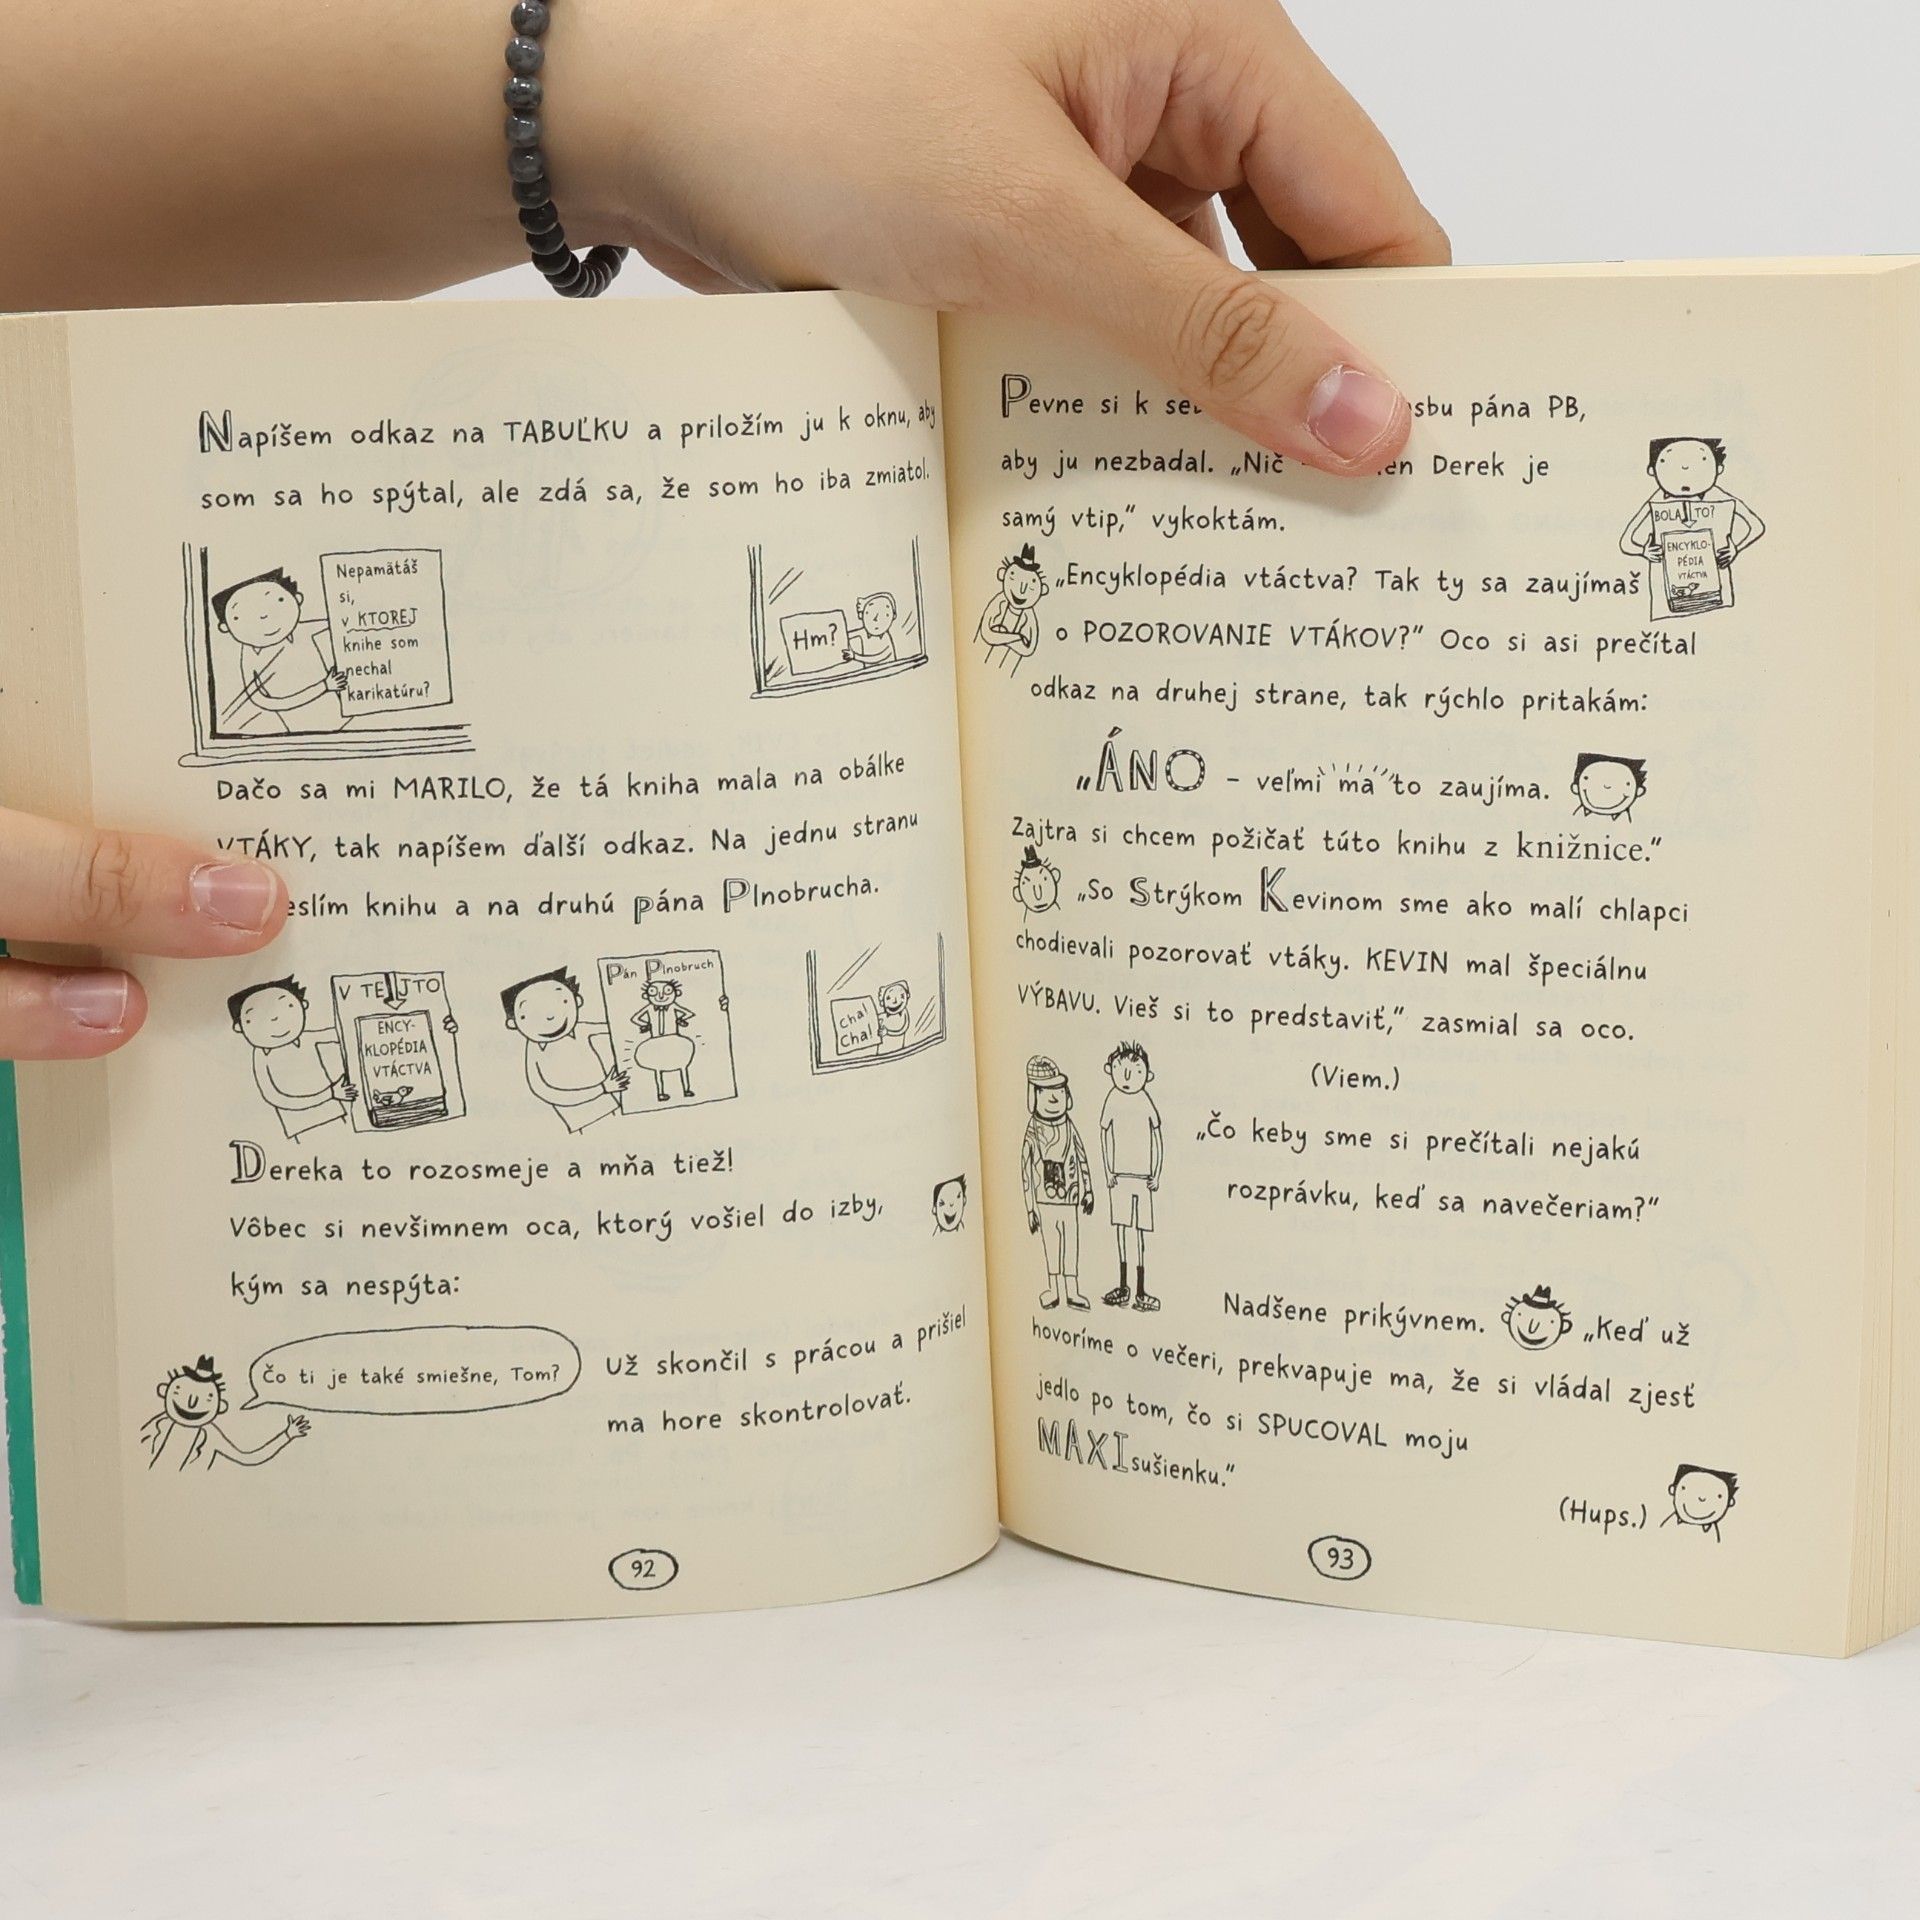 Napíšem odkaz na TABUĽKU a priložím ju k oknu, aby
som sa ho spýtal, ale zdá sa, že som ho iba zmiatol.
Nepamätáš
si,
v KTOREJ
knihe som
nechal
karikatúru?
Hm?
Dačo sa mi MARILO, že tá kniha mala na obálke
VTÁKY, tak napíšem ďalší odkaz. Na jednu stranu
knihu a na druhú pána Plnobrucha.
V TEJTO
ENCY-
KLOPÉDIA
VTÁCTVA
Pán Plnobruch
Cha!
Cha!
Dereka to rozosmeje a mňa tiež!
Vôbec si nevšimnem oca, ktorý vošiel do izby,
kým sa nespýta:
Čo ti je také smiešne, Tom?
Už skončil s prácou a prišiel
ma hore skontrolovať.
92
Pevne si k pána PB,
aby ju nezbadal. „Nič Derek je
samý vtip,“ vykoktám.
BOLA TO?
ENCYKLO-
PÉDIA
VTÁCTVA
„Encyklopédia vtáctva? Tak ty sa zaujímaš
o POZOROVANIE VTÁKOV?“ Oco si asi prečítal
odkaz na druhej strane, tak rýchlo pritakám:
„ÁNO – veľmi ma to zaujíma.
Zajtra si chcem požičať túto knihu z knižnice.“
„So Strýkom Kevinom sme ako malí chlapci
chodievali pozorovať vtáky. KEVIN mal špeciálnu
VÝBAVU. Vieš si to predstaviť,“ zasmial sa oco.
(Viem.)
„Čo keby sme si prečítali nejakú
rozprávku, keď sa navečeriam?“
Nadšene prikývnem. „Keď už
hovoríme o večeri, prekvapuje ma, že si vládal zjesť
jedlo po tom, čo si SPUCOVAL moju
MAXI sušienku.“
(Hups.)
93